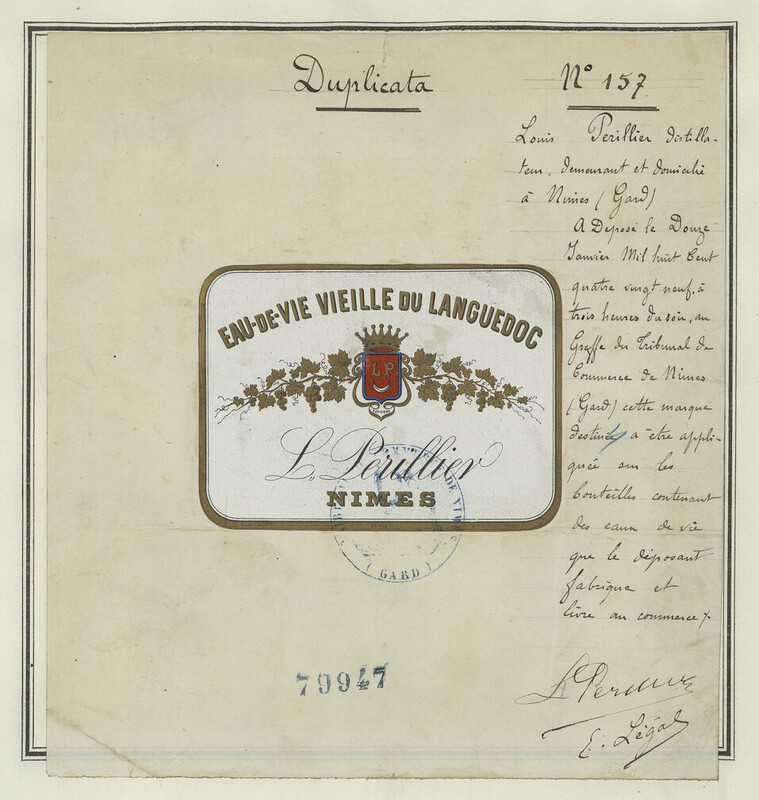 Duplicata
N° 157
Louis Perillier distilla-
teur, demeurant et domicilié
à Nimes (Gard)
A Déposé le Douze
Janvier Mil huit Cent
quatre vingt neuf, à
trois heures du soir, au
Greffe du Tribunal de
Commerce de Nimes
(Gard) cette marque
destinée à être appli-
quée sur les
bouteilles contenant
des eaux de vie
que le déposant
fabrique et
livre au commerce
EAU-DE-VIE VIEILLE DU LANGUEDOC
LP
L. Périllier
NIMES
DE NIMES
(GARD)
79947
L Perillier
E. Légal